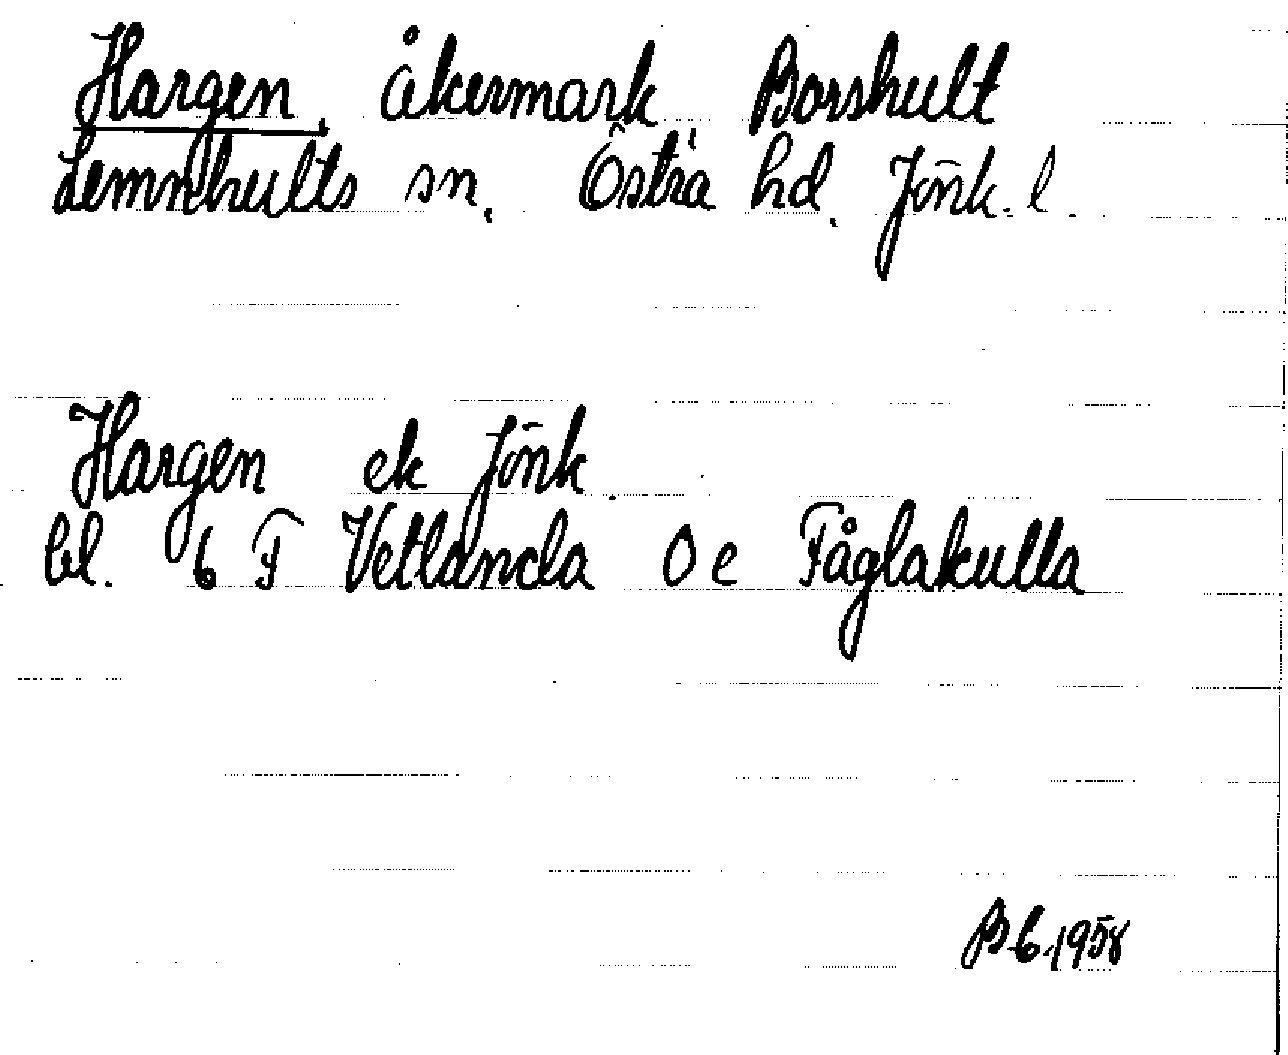 Hargen, åkermark Borshult
Lemnhults sn. Östra hd. Jönk. l.
Hargen ek Jönk.
bl. 6 F Vetlanda 0 e Fåglakulla
BG 1958